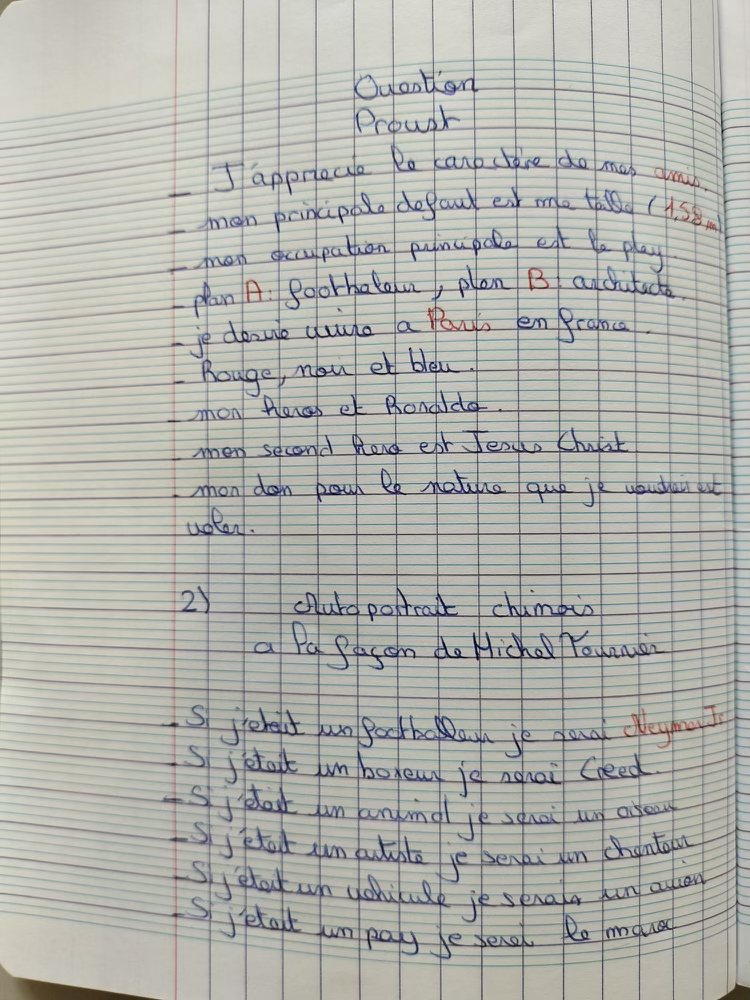 Question
Proust
- J'apprecie le caractère de mes amis.
- mon principale defaut est ma taille (1,58m)
- mon occupation principale est le play.
- plan A : footbaleur, plan B : architecte.
- je desire vivre a Paris en france.
- Rouge, noir et bleu.
- mon heros et Ronaldo.
- mon second hero est Jesus Christ
- mon don pour la nature que je voudrait est
voler.
2) Autoportrait chinois
a la façon de Michel Tournier
- Si j'etait un footballeur je serai Neymar Jr
- Si j'était un boxeur je serai Creed.
- Si j'était un animal je serai un oiseau
- Si j'était un artiste je serai un chanteur
- Si j'était un vehicule je serais un avion
- Si j'etait un pay je serei le maroc